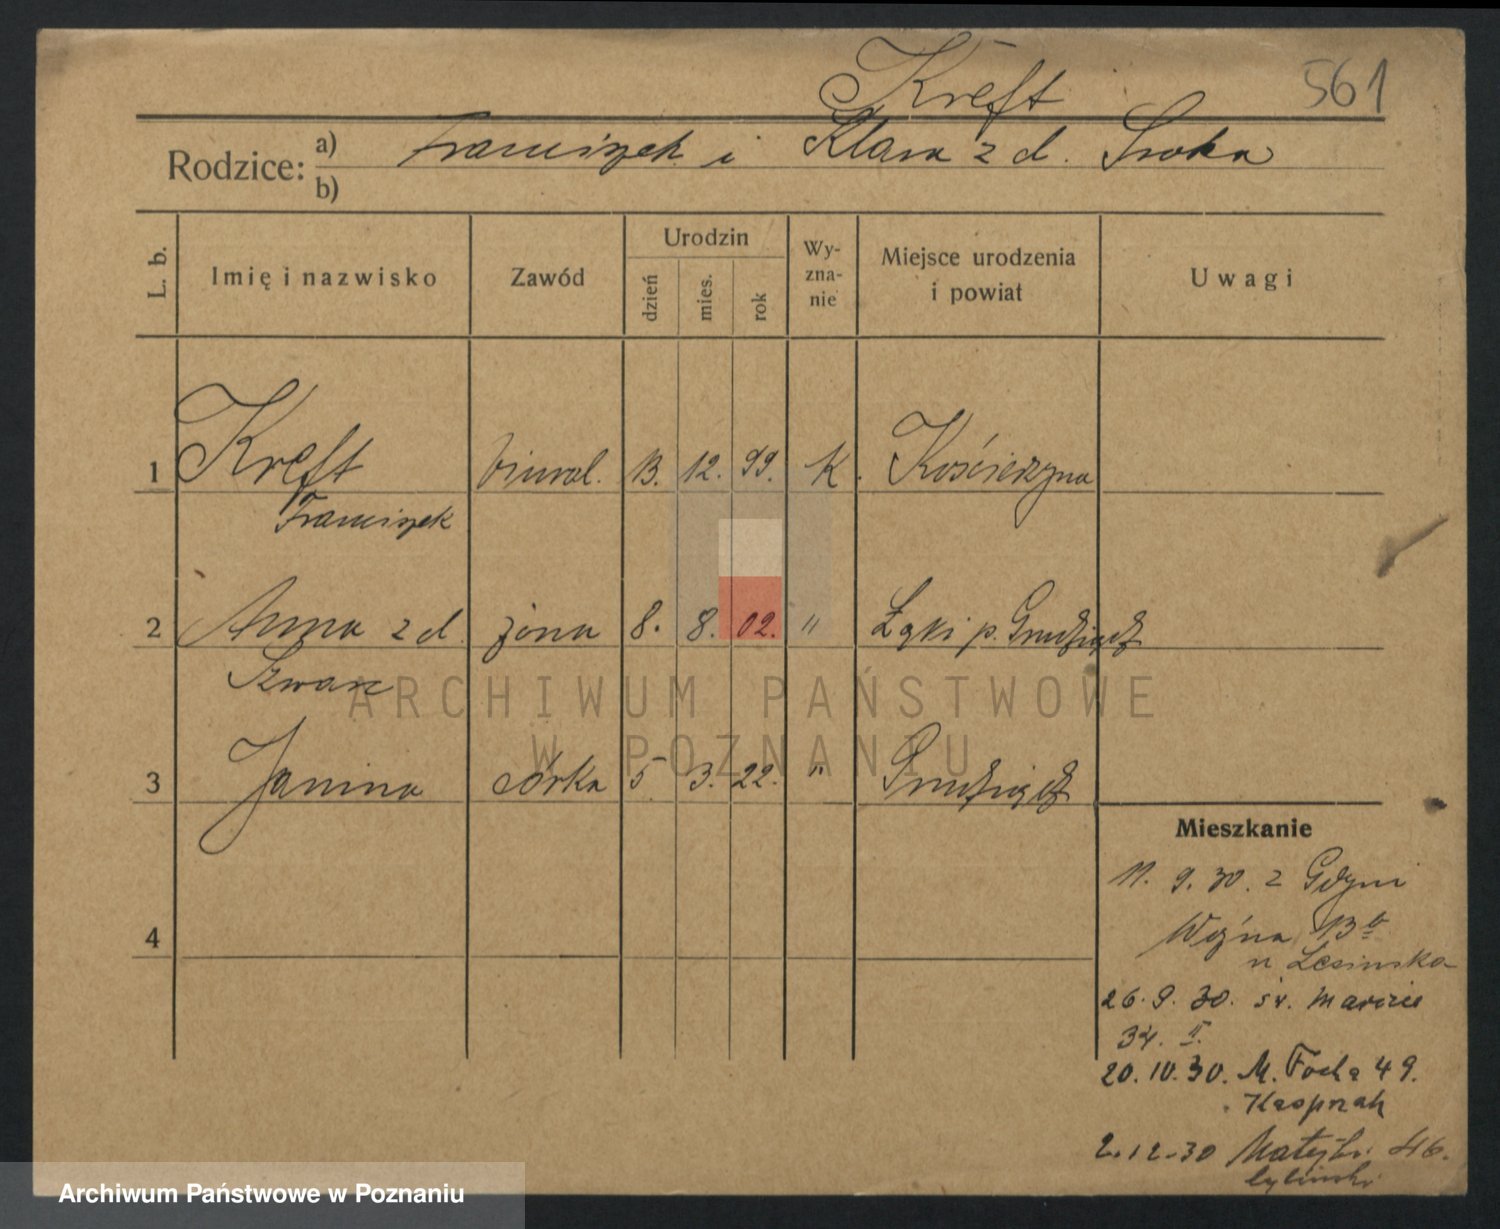 Kreft 561
Rodzice: a) Franciszek i Klara z d. Sroka
b)
L. b. Imię i nazwisko Zawód Urodzin dzień mies. rok Wyznanie Miejsce urodzenia i powiat Uwagi
1 Kreft biural. 13. 12. 99. K. Kościerzyna
Franciszek
2 Anna z d. żona 8. 8. 02. " Łąki p. Grudziądz
Szwarc
3 Janina córka 5 3. 22. " Grudziądz
4
Mieszkanie
11. 9. 30. z Gdyni
Woźna 13 b
u Lesinska
26. 9. 30. św. Marcin
34. II.
20. 10. 30. M. Focha 49.
Kasprzak
2.12.30 Matejki 46.
ARCHIWUM PAŃSTWOWE
W POZNANIU
Archiwum Państwowe w Poznaniu